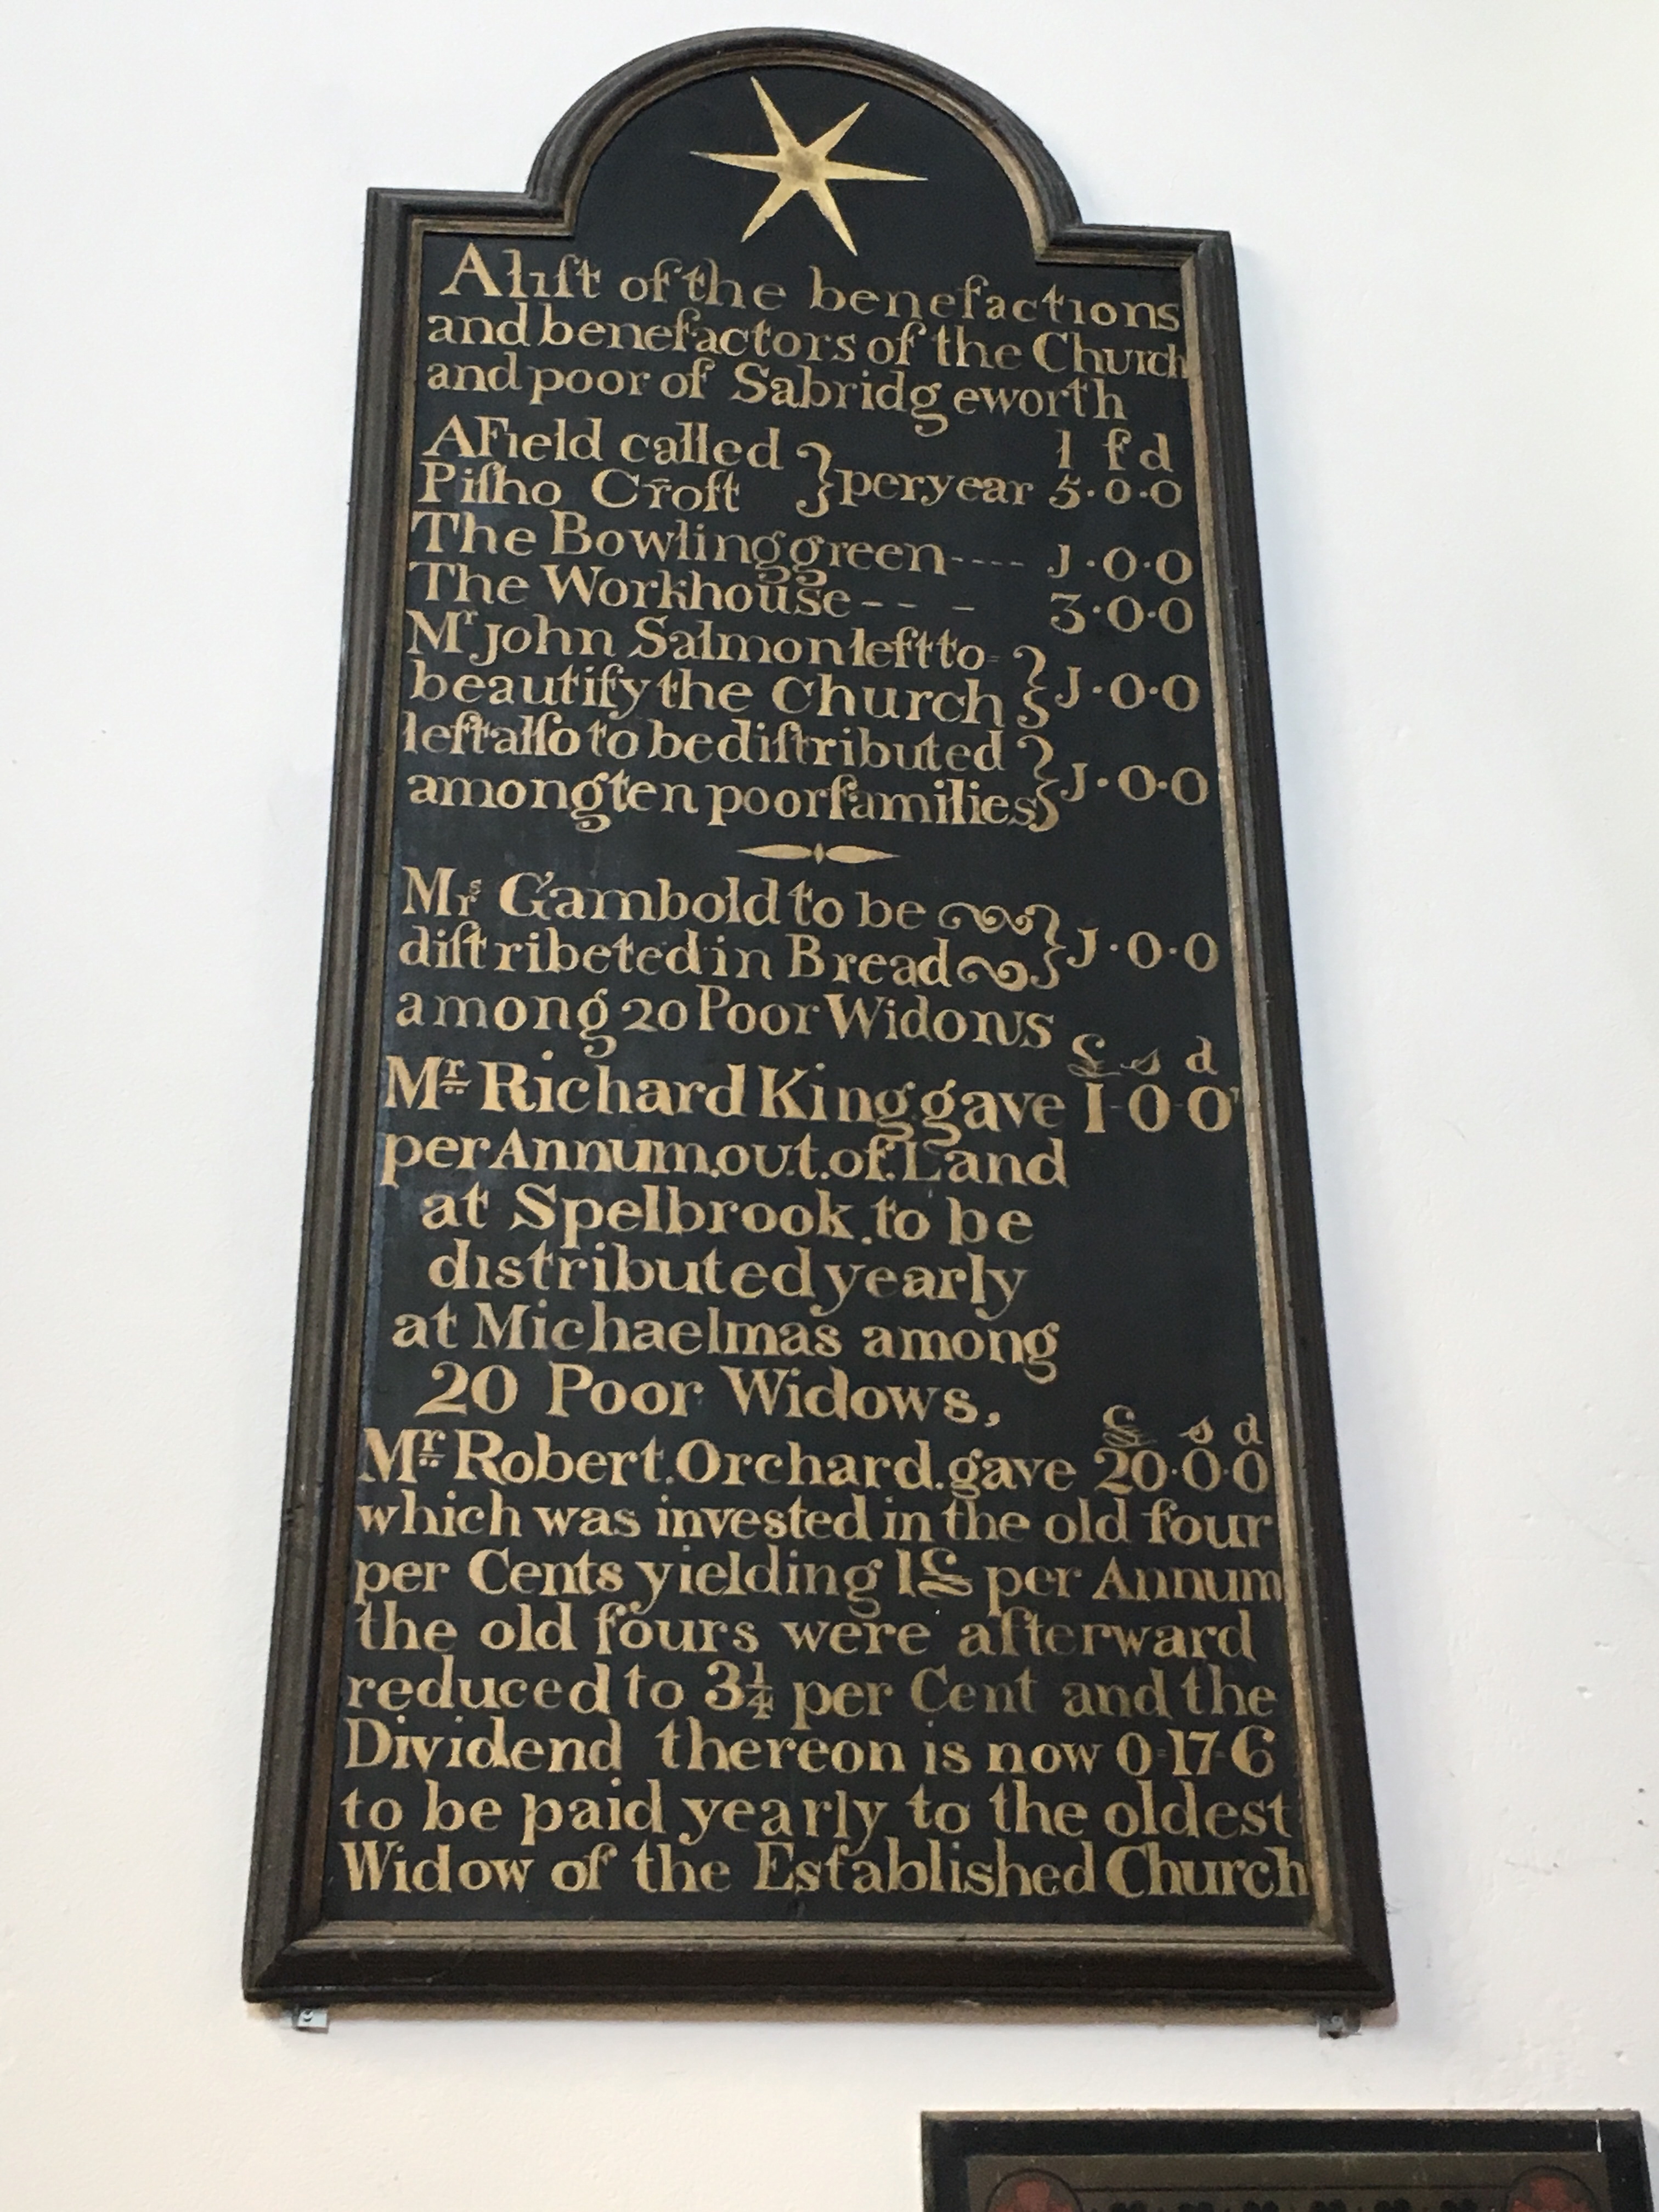 A liſt of the benefactions
and benefactors of the Church
and poor of Sabridgeworth
A Field called } l ſ d
Piſho Croft } per year 5·0·0
The Bowling green---- J·0·0
The Workhouse - - - 3·0·0
Mr John Salmon left to }
beautify the Church } J·0·0
left alſo to be diſtributed }
among ten poor families } J·0·0
Mrs Gambold to be }
diſtribeted in Bread } J·0·0
among 20 Poor Widows
£ s d
Mr Richard King gave 1-0-0
per Annum.out.of.Land
at Spelbrook.to be
distributed yearly
at Michaelmas among
20 Poor Widows,
£ s d
Mr Robert.Orchard.gave 20·0·0
which was invested in the old four
per Cents yielding 1£ per Annum
the old fours were afterward
reduced to 3¼ per Cent and the
Dividend thereon is now 0-17-6
to be paid yearly to the oldest
Widow of the Established Church